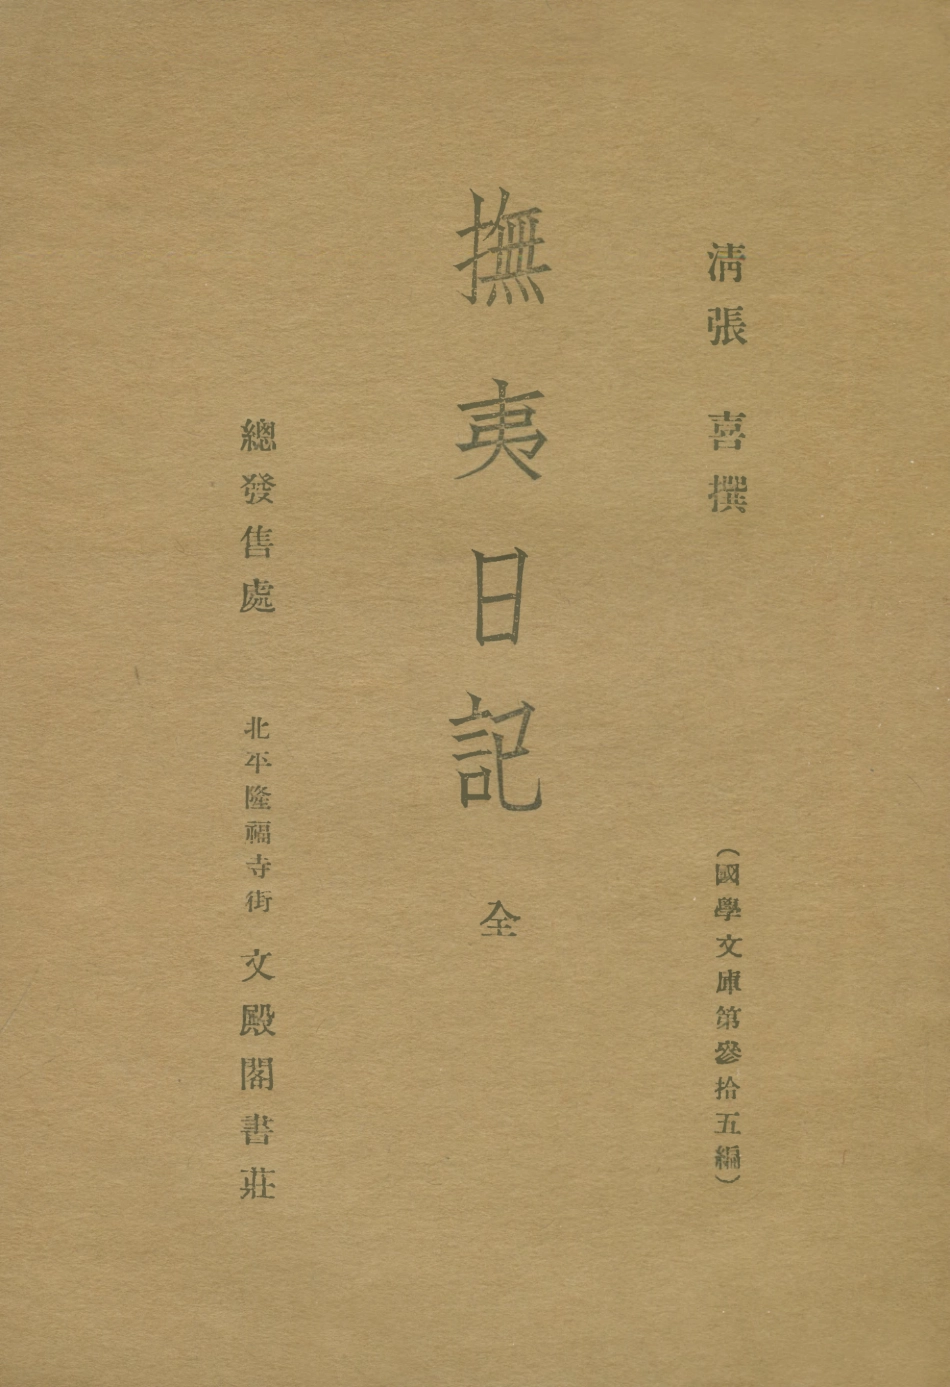 清張 喜撰 (國學文庫第叄拾五編)
撫夷日記 全
總發售處 北平隆福寺街 文殿閣書莊